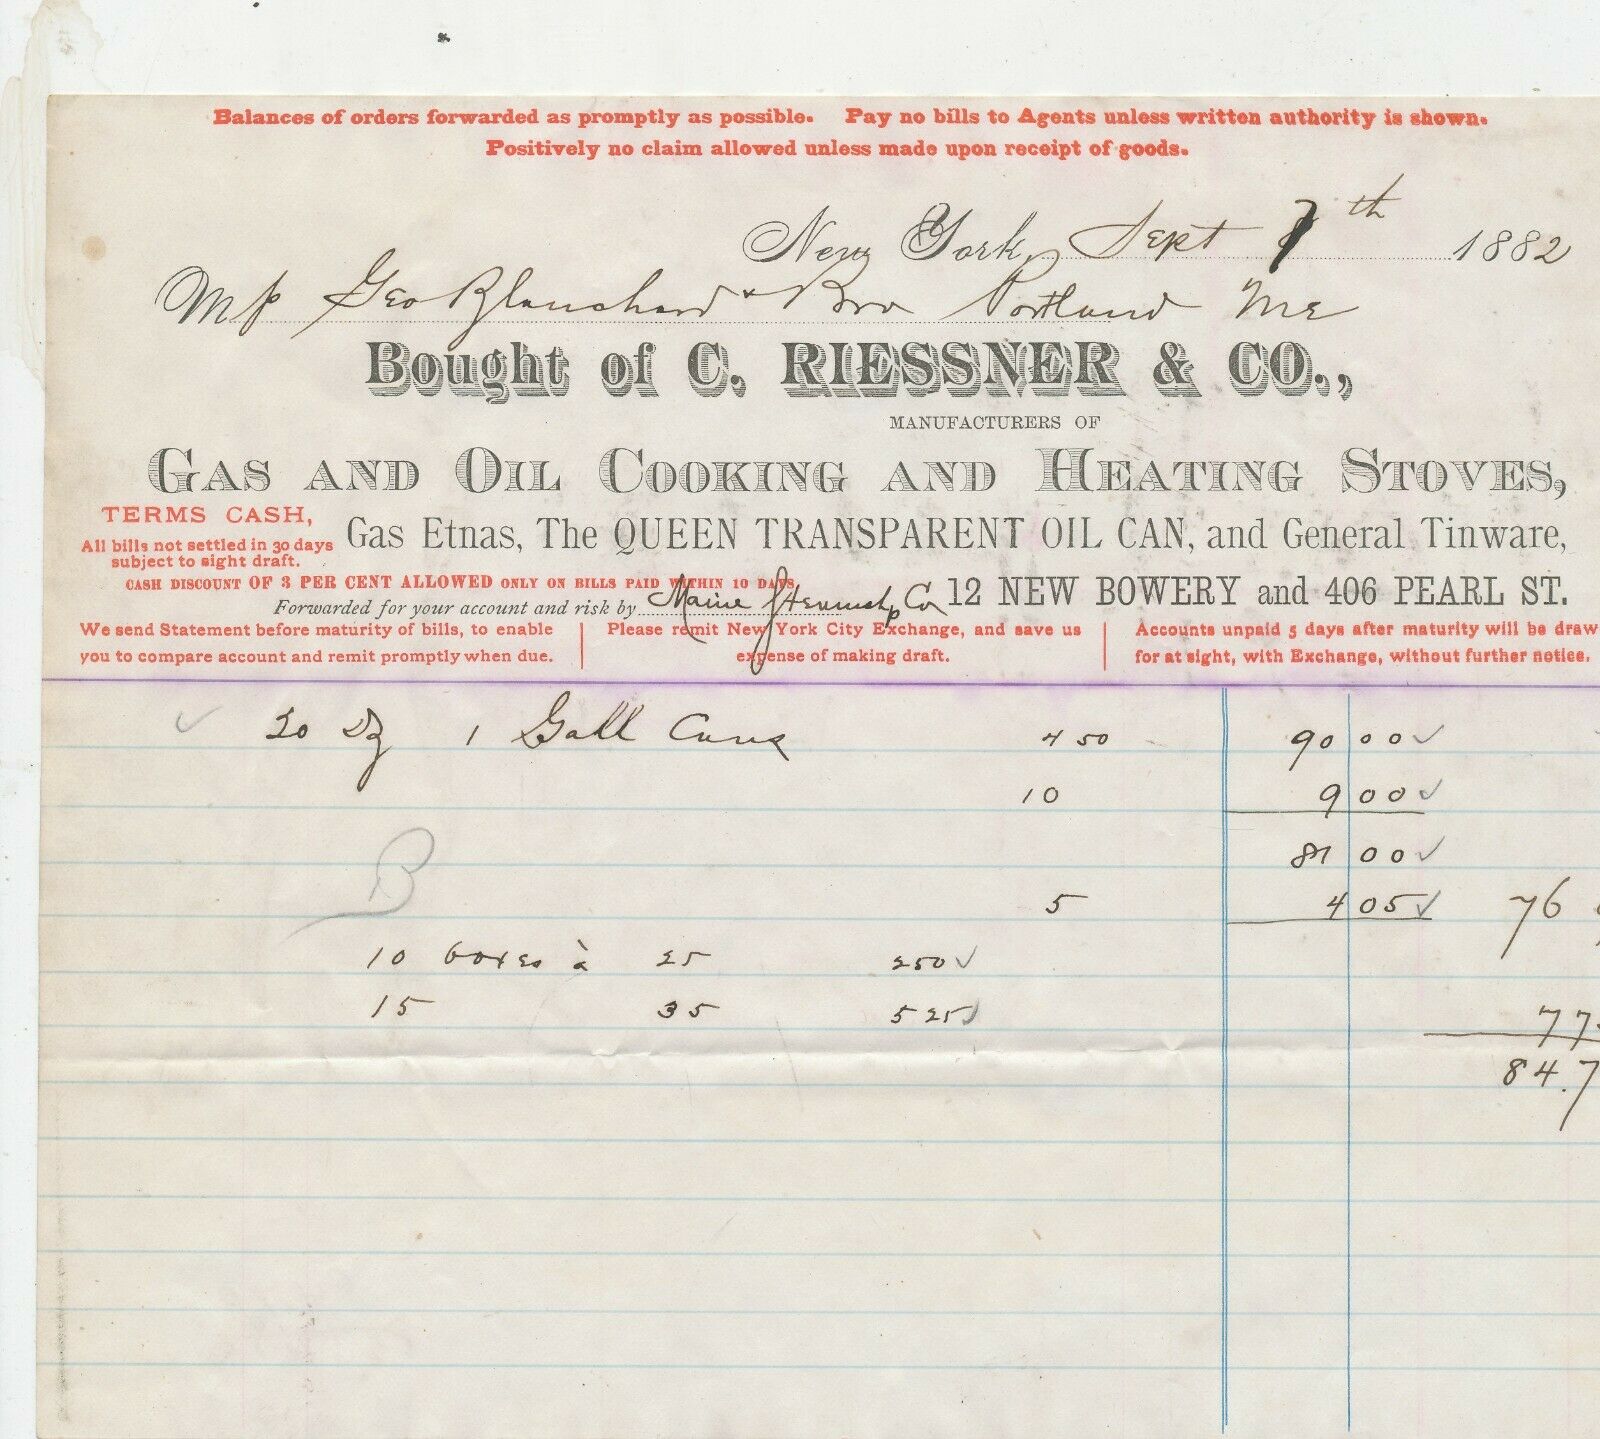 Balances of orders forwarded as promptly as possible. Pay no bills to Agents unless written authority is shown.
Positively no claim allowed unless made upon receipt of goods.
New York, Sept 7th 1882
Geo Blanchard & Bro Portland Me
Bought of C. RIESSNER & CO.,
MANUFACTURERS OF
GAS AND OIL COOKING AND HEATING STOVES,
TERMS CASH,
All bills not settled in 30 days
subject to sight draft.
Gas Etnas, The QUEEN TRANSPARENT OIL CAN, and General Tinware,
CASH DISCOUNT OF 3 PER CENT ALLOWED ONLY ON BILLS PAID WITHIN 10 DAYS.
Forwarded for your account and risk by Maine Steamshp Co
12 NEW BOWERY and 406 PEARL ST.
We send Statement before maturity of bills, to enable
you to compare account and remit promptly when due.
Please remit New York City Exchange, and save us
expense of making draft.
Accounts unpaid 5 days after maturity will be draw
for at sight, with Exchange, without further notice.
20 Dz 1 Gall Cans 4 50 90 00
10 9 00
81 00
5 4 05 76
B
10 boxes à 25 250
15 35 525 77
84.7